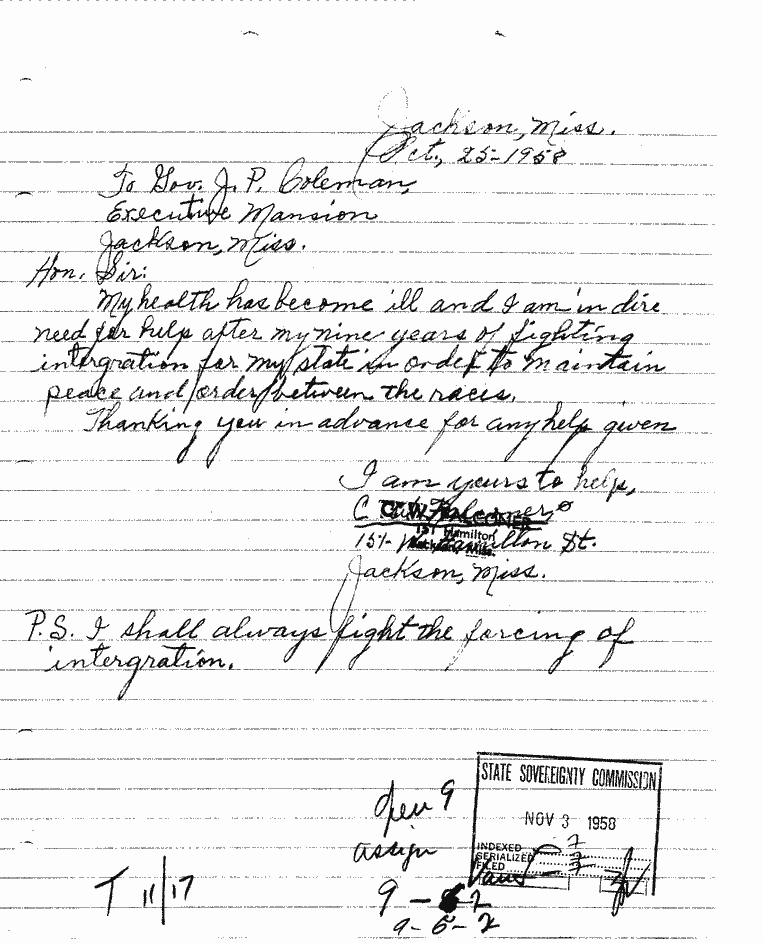 Jackson, Miss.
Oct., 25-1958
To Gov. J. P. Coleman,
Executive Mansion
Jackson, Miss.
Hon. Sir:
My health has become ill and I am in dire
need for help after my nine years of fighting
intergration for my state in order to maintain
peace and order between the races.
Thanking you in advance for any help given
I am yours to help,
C. W. FALCONER
151 Hamilton
Jackson, Miss.
Hamilton St.
Jackson, Miss.
P.S. I shall always fight the forcing of
intergration.
STATE SOVEREIGNTY COMMISSION
NOV 3 1958
INDEXED
SERIALIZED
FILED
open 9
assign
T 11/17
9-5-2